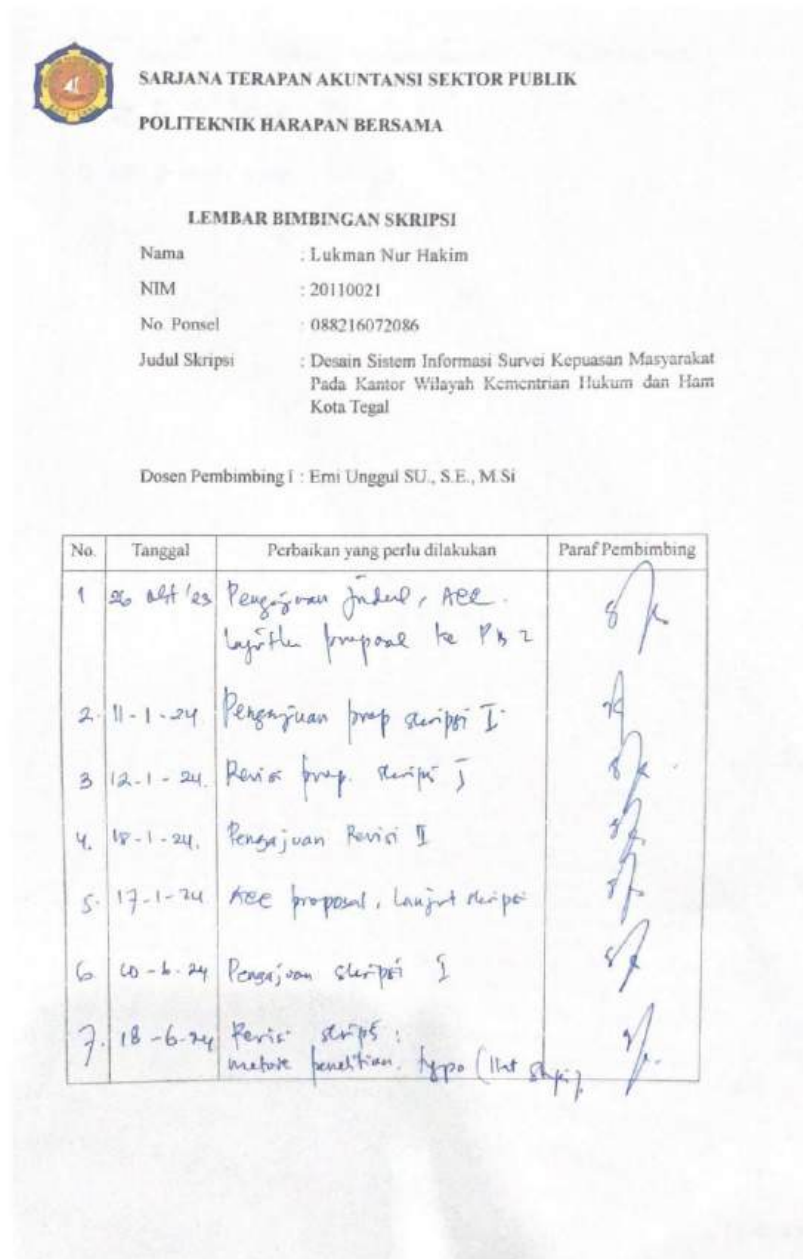 SARJANA TERAPAN AKUNTANSI SEKTOR PUBLIK
POLITEKNIK HARAPAN BERSAMA
LEMBAR BIMBINGAN SKRIPSI
Nama : Lukman Nur Hakim
NIM : 20110021
No. Ponsel : 088216072086
Judul Skripsi : Desain Sistem Informasi Survei Kepuasan Masyarakat
Pada Kantor Wilayah Kementrian Hukum dan Ham
Kota Tegal
Dosen Pembimbing I : Erni Unggul SU., S.E., M.Si
No. Tanggal Perbaikan yang perlu dilakukan Paraf Pembimbing
1 26 okt '23 Pengajuan judul, ACC.
proposal ke PB 2
2. 11-1-24 Pengajuan prop skripsi I
3 12-1-24. Revisi prop. skripsi I
4. -1-24. Pengajuan Revisi II
5. 17-1-24 ACC proposal, Lanjut skripsi
6 -6-24 Pengajuan skripsi I
7. 18-6-24 Revisi skripsi :
penelitian. typo (lihat skripsi).